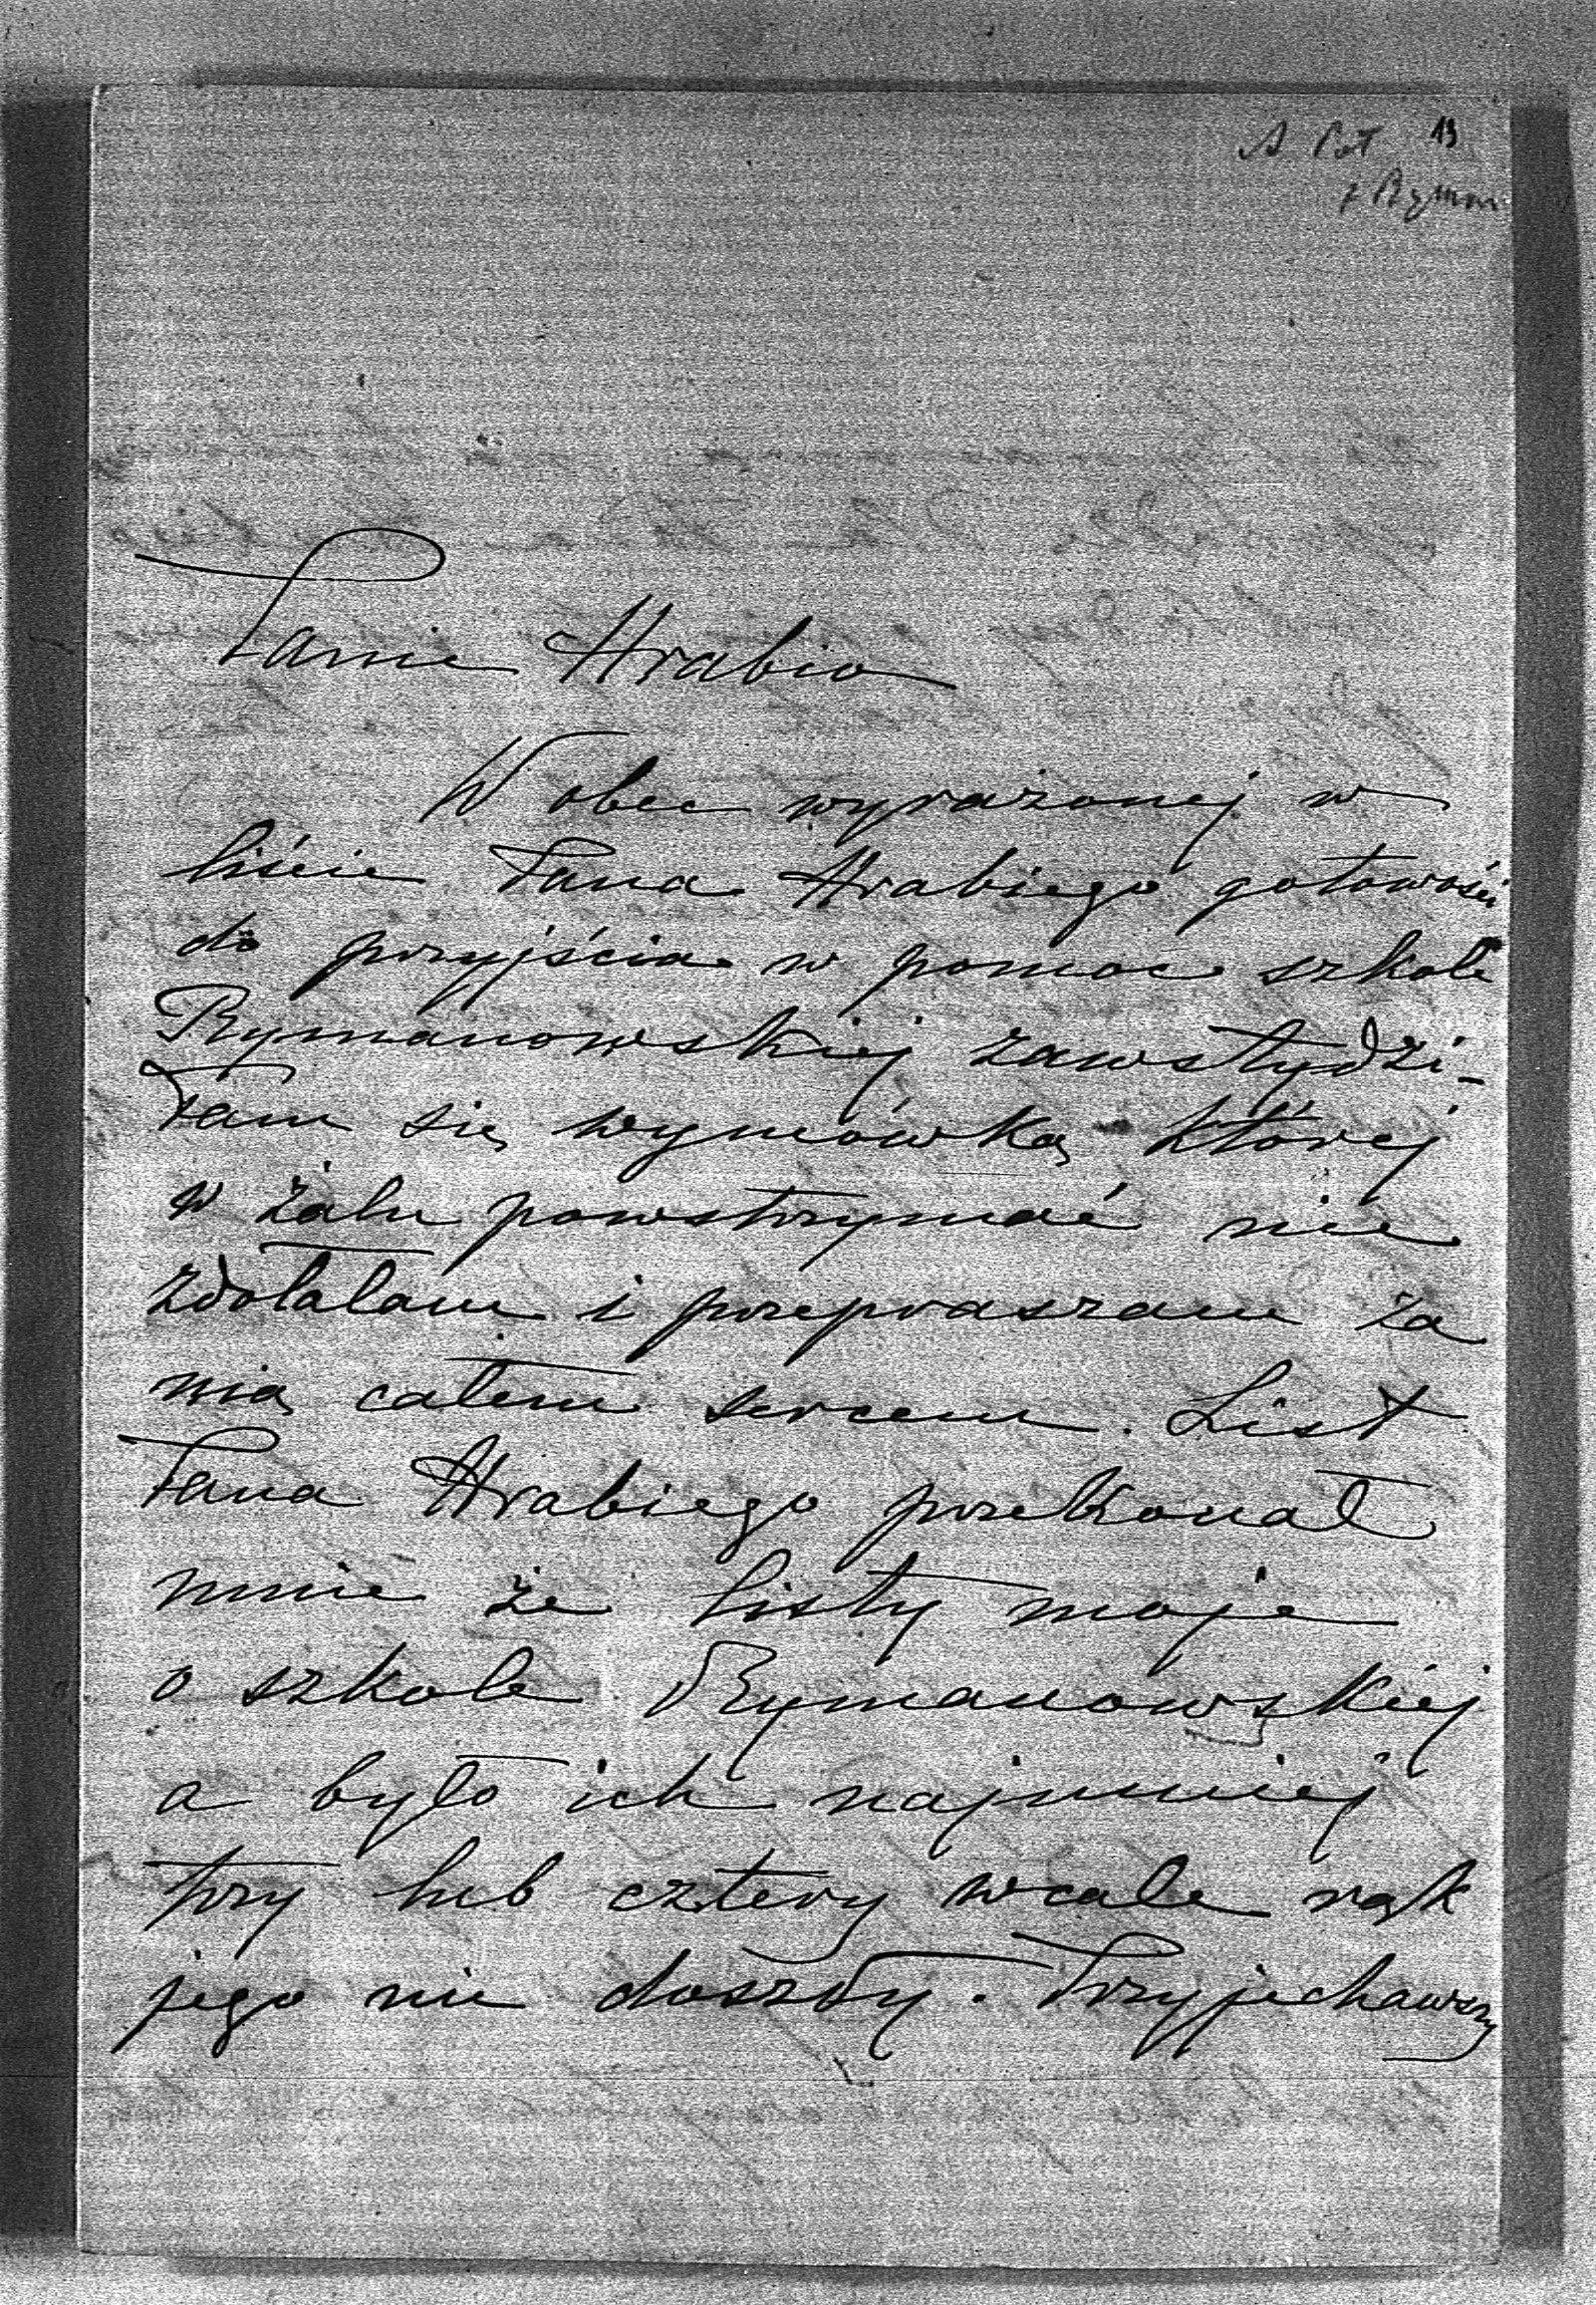 A Pot 13
z Ryman
Panie Hrabio
W obec wyrażonej w
liście Pana Hrabiego gotowości
do przyjścia w pomoc szkole
Rymanowskiej zawstydzi-
łam się wymówką której
w żalu powstrzymać nie
zdołałam i przepraszam za
nią całem sercem. List
Pana Hrabiego przekonał
mnie że listy moje
o szkole Rymanowskiej
a było ich najmniej
trzy lub cztery wcale rąk
jego nie doszły. Przyjechawszy